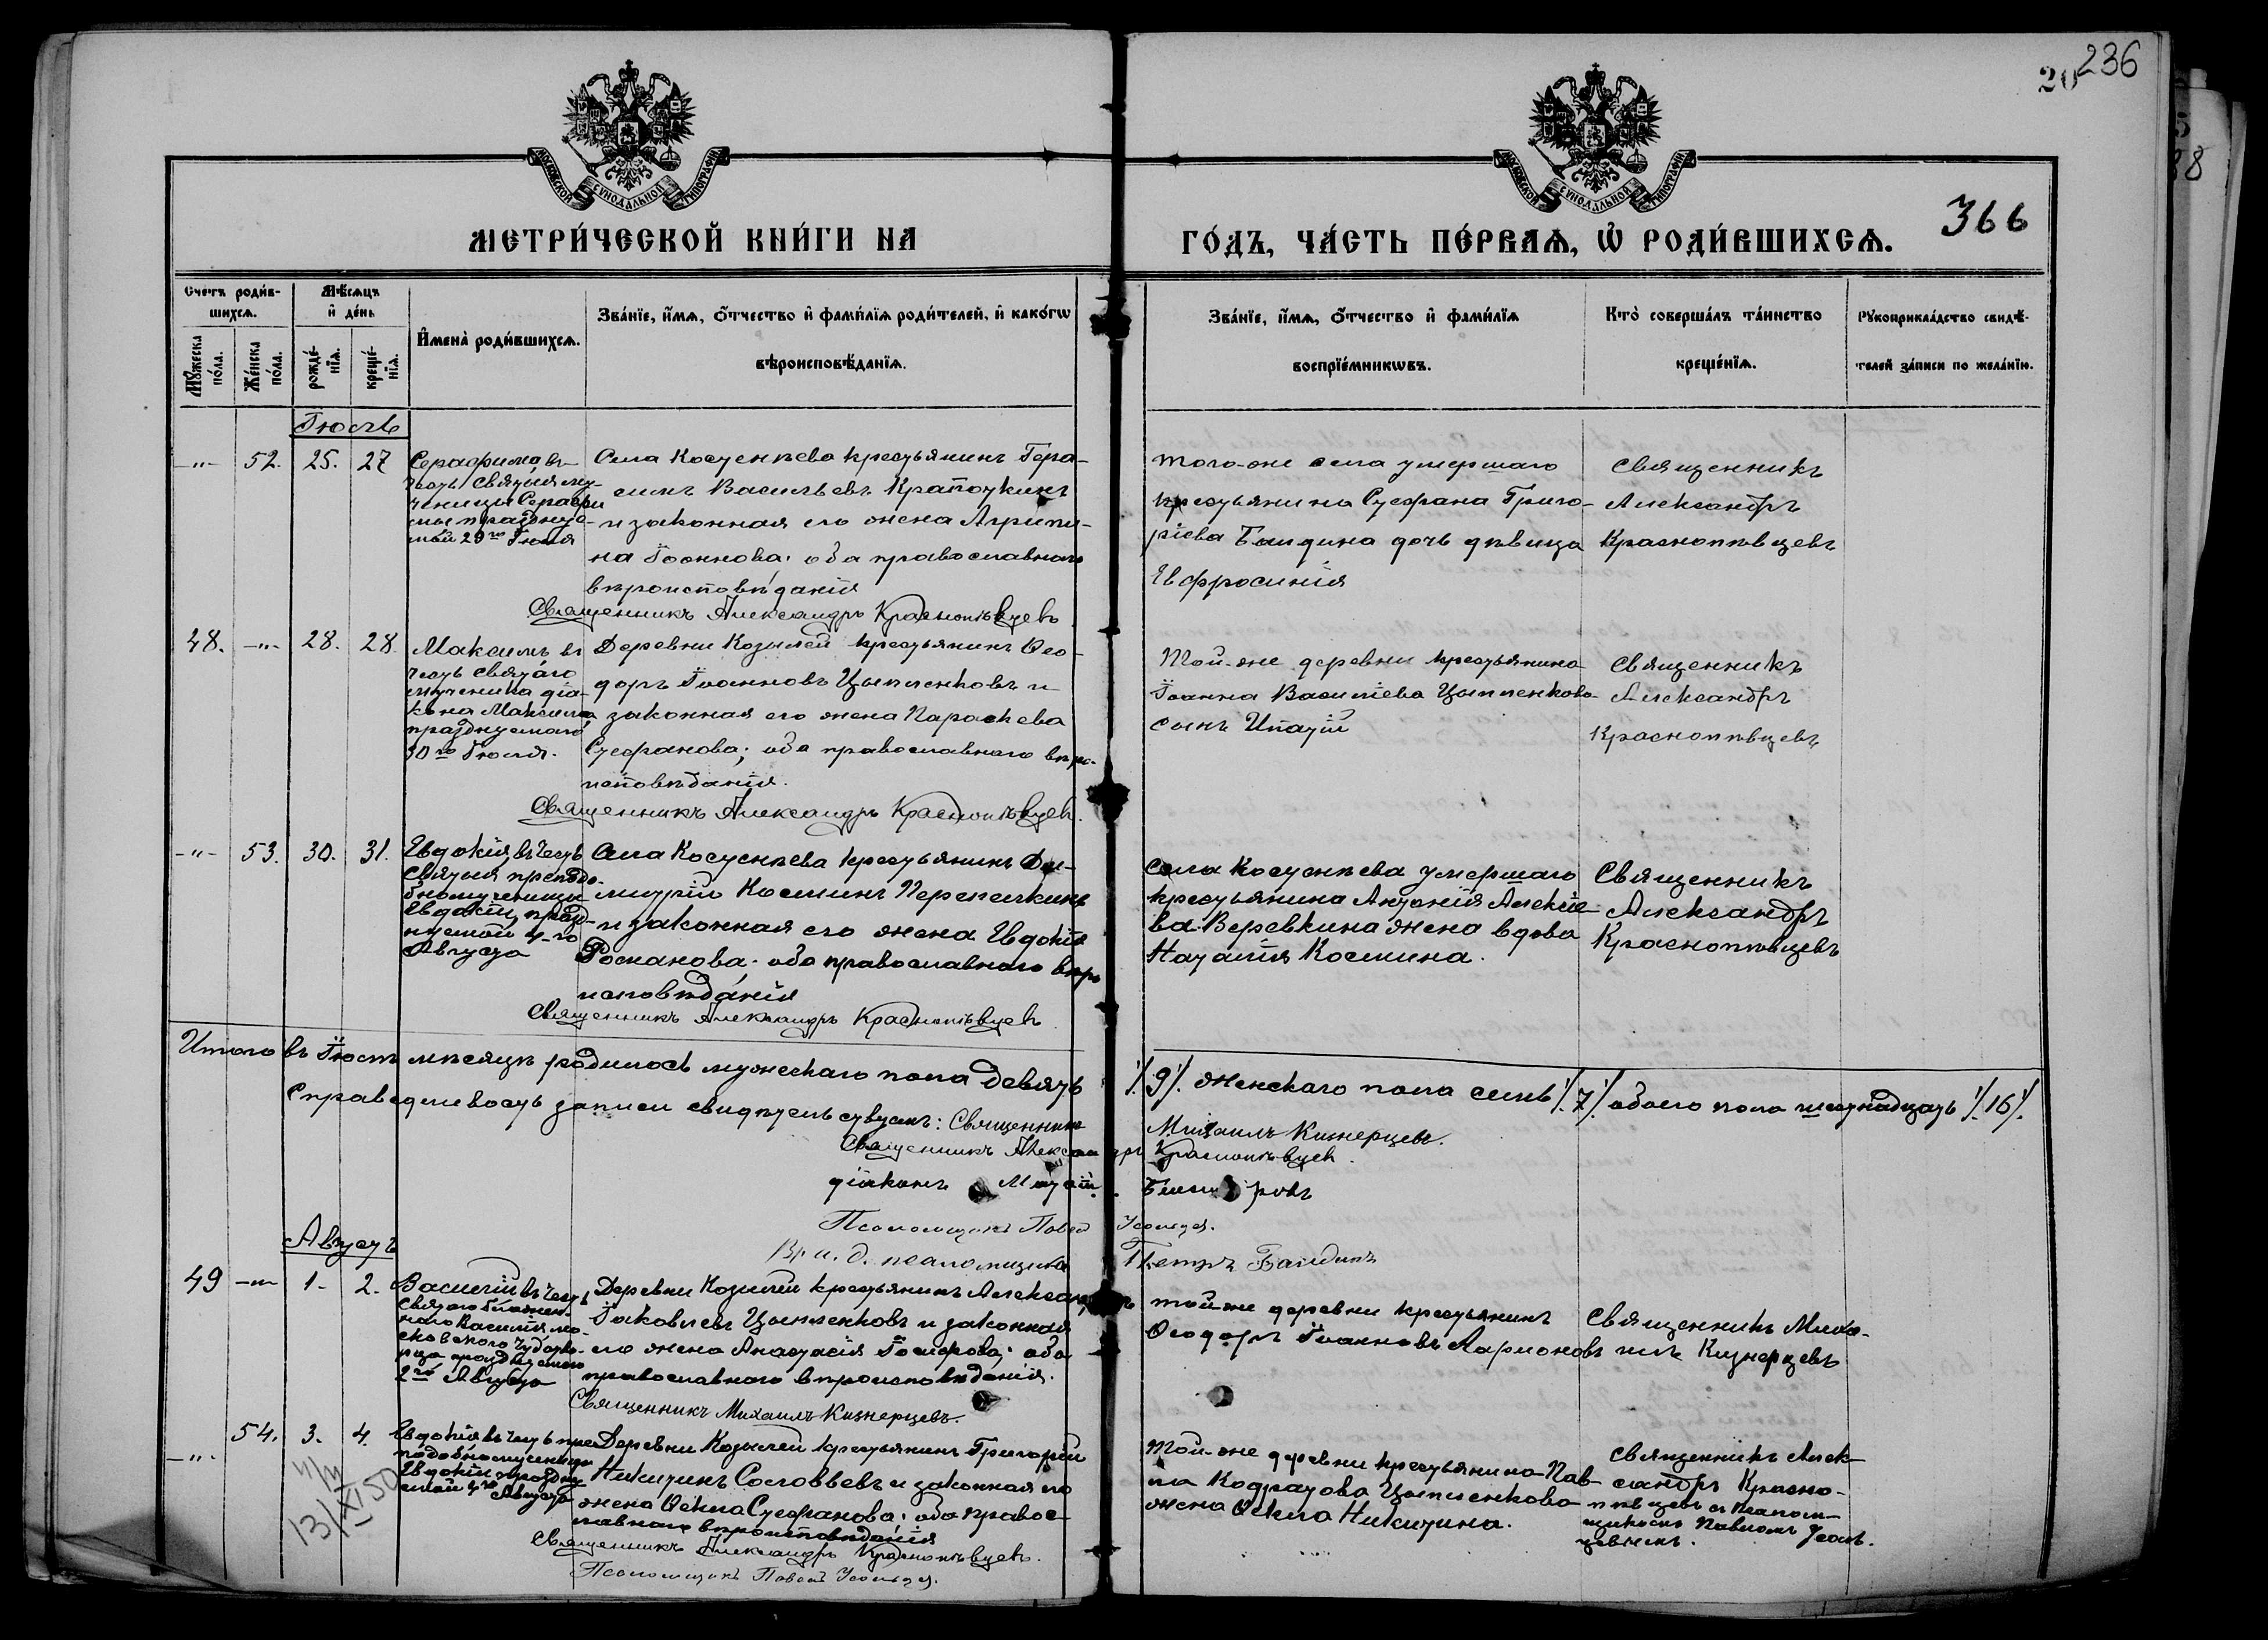 236
20
366
МОСКОВСКОЙ СУНОДАЛЬНОЙ ТИПОГРАФІИ
МОСКОВСКОЙ СУНОДАЛЬНОЙ ТИПОГРАФІИ
МЕТРИ́ЧЕСКОЙ КНИ́ГИ НА
ГО́ДЪ, ЧА́СТЬ ПЕ́РВАѦ, Ѡ РОДИ́ВШИХСѦ.
Счетъ роди́в-
шихсѧ.
Мѣ́сѧцъ
и де́нь
Мꙋ́жеска
по́ла.
Же́нска
по́ла.
рожде́-
нїѧ.
креще́-
нїѧ.
Имена̀ роди́вшихсѧ.
Зва́нїе, и́мѧ, ѻ́тчество и фами́лїѧ роди́телей, и како́гѡ
вѣроисповѣ́данїѧ.
Зва́нїе, и́мѧ, ѻ́тчество и фами́лїѧ
воспрїе́мникѡвъ.
Кто̀ соверша́лъ та́инство
креще́нїѧ.
Рꙋкоприкла́дство свидѣ́-
телей за́писи по жела́нїю.
Іюль
-"- 52. 25. 27
Серафима въ
честь святыя му-
ченицы Серафи
мы празднуе-
мый 29го Іюля
Села Косуснѣева крестьянинъ Гера-
симъ Васильевъ Крапоткинъ
и законная его жена Агрипи-
на Іоаннова; оба православнаго
вѣроисповѣданія
Священникъ Александръ Краснопѣвцевъ
того-же села умершаго
крестьянина Стефана Григо-
ріева Баидина дочь дѣвица
Евфросинія
Священникъ
Александръ
Краснопѣвцевъ
48. -"- 28. 28.
Максимъ въ
честь святаго
мученика діа-
кона Максима
празднуемаго
30го Іюля.
Деревни Козылей крестьянинъ Ѳео-
доръ Іоанновъ Цыпленковъ и
законная его жена Параскева
Стефанова; оба православнаго вѣро-
исповѣданія.
Священникъ Александръ Краснопѣвцевъ.
Той-же деревни крестьянина
Іоанна Василіева Цыпленкова
сынъ Ипатій
Священникъ
Александръ
Краснопѣвцевъ
-"- 53. 30. 31.
Евдокія, въ честь
святыя преподо-
бномученицы
Евдокіи, празд-
нуемой 4-го
Августа
Села Косуснѣева крестьянинъ Ди-
митрій Косминъ Перепелкинъ
и законная его жена Евдокія
Романова; оба православнаго вѣро
исповѣданія
Священникъ Александръ Краснопѣвцевъ
села Косуснѣева умершаго
крестьянина Антонія Алексѣе-
ва Веревкина жена вдова
Наталія Космина.
Священникъ
Александръ
Краснопѣвцевъ
Итого въ Іюлѣ мѣсяцѣ родилось мужескаго пола девять /9/. женскаго пола семь /7/ обоего пола шестнадцать /16/.
Справедливость записи свидѣтельствуемъ: Священникъ Михаилъ Кизнерцевъ.
Священникъ Александръ Краснопѣвцевъ.
діаконъ
Псаломщикъ Павел Усольцев.
Вр. и. д. псаломщика Петръ Баидинъ
Августъ
49 -"- 1. 2.
Василій въ честь
святаго блажен-
наго Василія мо-
сковскаго чудотво-
рца празднуемаго
2го Августа
Деревни Козылей крестьянинъ Александръ
Іаковлевъ Цыпленковъ и законная
его жена Анастасія; оба
православнаго вѣроисповѣданія.
Священникъ Михаилъ Кизнерцевъ.
той-же деревни крестьянинъ
Ѳеодоръ Іоанновъ Ларионовъ
Священникъ Миха-
илъ Кизнерцевъ
-"- 54. 3. 4.
Евдокія въ честь пре
подобномученицы
Евдокіи праздну
емой 4го Августа
Деревни Козылей крестьянинъ Григорій
Никитинъ Соловьевъ и законная его
жена Ѳекла Стефанова; оба правос-
лавнаго вѣроисповѣданія
Священникъ Александръ Краснопѣвцевъ.
Псаломщикъ Павелъ Усольцев.
Той-же деревни крестьянина Пав-
ла Кодратова Цыпленкова
жена Ѳекла Никитина.
Священникъ Алек-
сандръ Красно-
пѣвцевъ съ псалом-
щикомъ Павломъ Усоль-
цевымъ.
13/XI 50